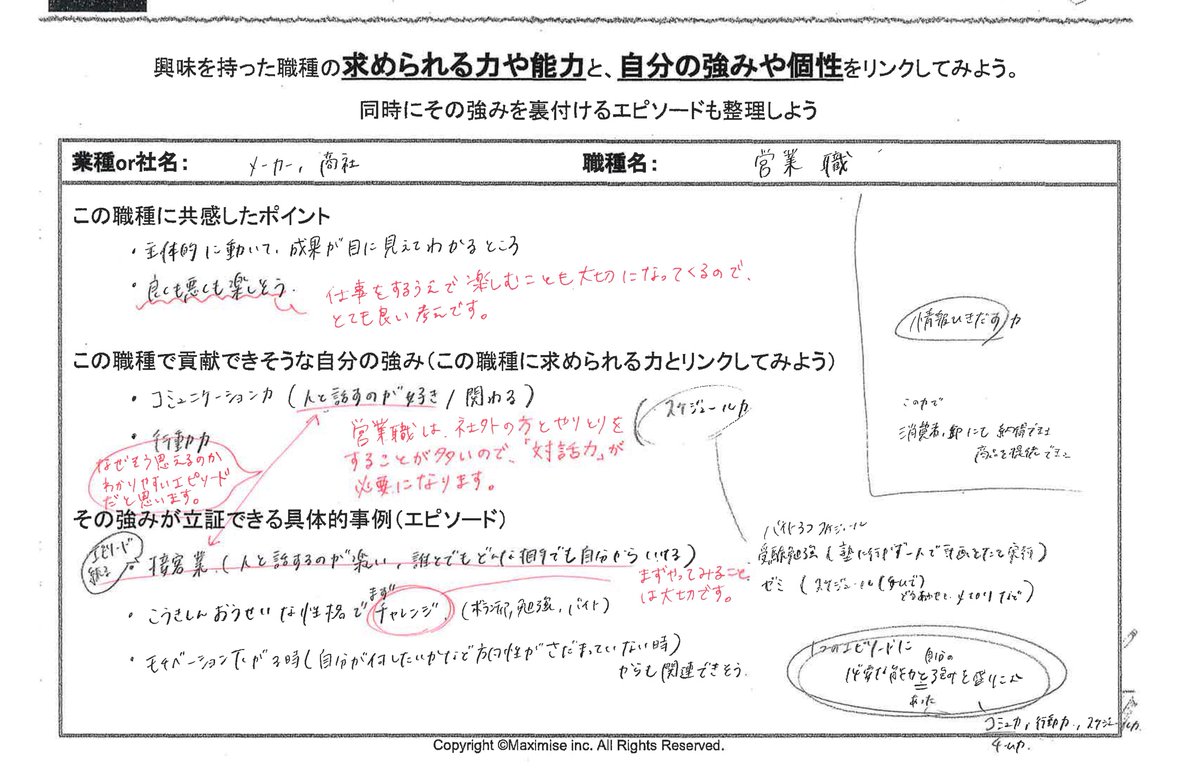 興味を持った職種の求められる力や能力と、自分の強みや個性をリンクしてみよう。
同時にその強みを裏付けるエピソードも整理しよう
業種or社名： メーカー, 商社 職種名： 営業職
この職種に共感したポイント
・主体的に動いて、成果が目に見えてわかるところ
・良くも悪くも楽しそう.
仕事をするうえで楽しむことも大切になってくるので、
とても良い考えです。
情報ひきだす力
この職種で貢献できそうな自分の強み（この職種に求められる力とリンクしてみよう）
・コミュニケーション力（人と話すのが好き / 関わる）
スケジュール力
この力で
消費者,
商品を提供
・行動力
営業職は、社外の方とやりとりを
することが多いので、「対話力」が
必要になります。
なぜそう思えるのか
わかりやすいエピソード
だと思います。
その強みが立証できる具体的事例（エピソード）
エピソード
・接客業（人と話するのが楽しい, 誰とでもどんな相手でも自分からいける）
まずやってみること
は大切です。
スケジュール
受験勉強（塾に行かず一人で計画をたて実行）
ゼミ（スケジュール
・こうきしんおうせいな性格でまずチャレンジ.（ボランティア, 勉強, バイト）
・モチベーション下がる時（自分が何したいかなど方向性がさだまっていない時）
からも関連できそう.
1つのエピソードに
自分の
能力と
コミュ力, 行動力, スケジュール力.
チーム力.
Copyright ©Maximise inc. All Rights Reserved.